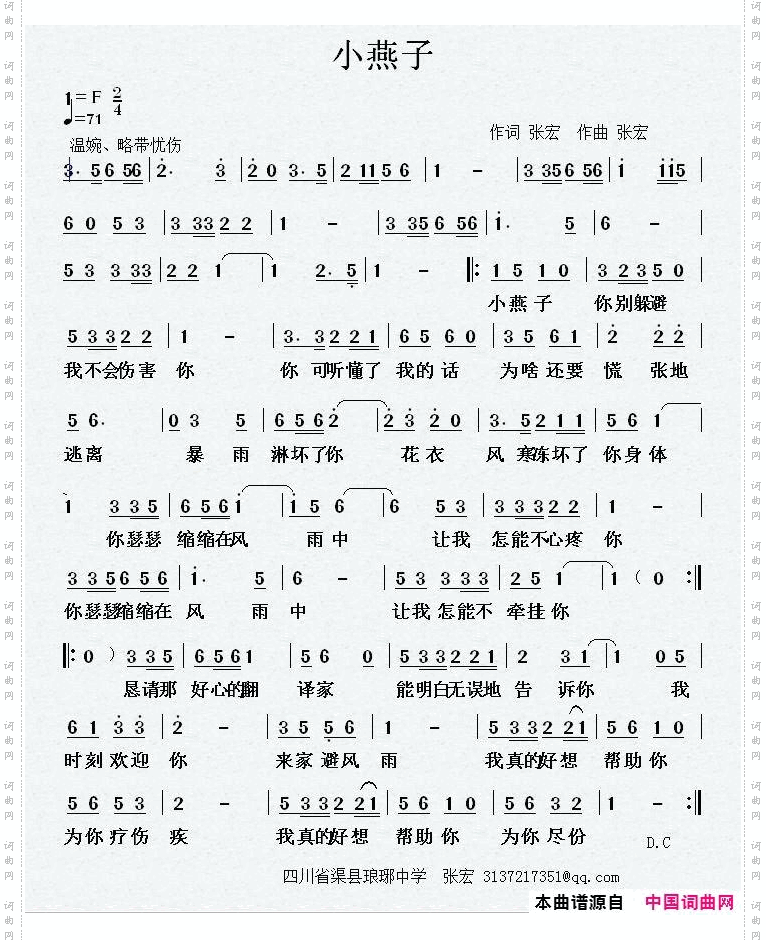 小燕子
1=F 2/4
♩=71
温婉、略带忧伤
作词 张宏 作曲 张宏
3. 5 6 56 | 2. 3 | 2 0 3. 5 | 2 11 5 6 | 1 - | 3 35 6 56 | 1 115 |
6 0 5 3 | 3 33 2 2 | 1 - | 3 35 6 56 | 1. 5 | 6 - |
5 3 3 33 | 2 2 1 | 1 2. 5 | 1 - |: 1 5 1 0 | 3 2 3 5 0 |
小燕子 你别躲避
5 3 3 2 2 | 1 - | 3. 3 2 2 1 | 6 5 6 0 | 3 5 6 1 | 2 2 2 |
我不会伤害 你 你 可听懂了 我的 话 为啥 还要 慌 张地
5 6. | 0 3 5 | 6 5 6 2 | 2 3 2 0 | 3. 5 2 1 1 | 5 6 1 |
逃离 暴 雨 淋坏了你 花 衣 风 寒冻坏了 你身 体
1 3 3 5 | 6 5 6 1 | 1 5 6 | 6 5 3 | 3 3 3 2 2 | 1 - |
你瑟瑟 缩缩在风 雨中 让我 怎能不心疼 你
3 3 5 6 5 6 | 1. 5 | 6 - | 5 3 3 3 3 | 2 5 1 | 1 ( 0 :|
你瑟瑟缩缩在 风 雨 中 让我 怎能不 牵挂 你
|: 0 ) 3 3 5 | 6 5 6 1 | 5 6 0 | 5 3 3 2 2 1 | 2 3 1 | 1 0 5 |
恳请那 好心的翻 译家 能明白无误地 告 诉你 我
6 1 3 3 | 2 - | 3 5 5 6 | 1 - | 5 3 3 2 2 1 | 5 6 1 0 |
时刻 欢迎 你 来家 避风 雨 我真的好想 帮助 你
5 6 5 3 | 2 - | 5 3 3 2 2 1 | 5 6 1 0 | 5 6 3 2 | 1 - :|
为你 疗伤 疾 我真的好想 帮助 你 为你 尽份
D.C
四川省渠县琅琊中学 张宏 3137217351@qq.com
本曲谱源自 中国词曲网